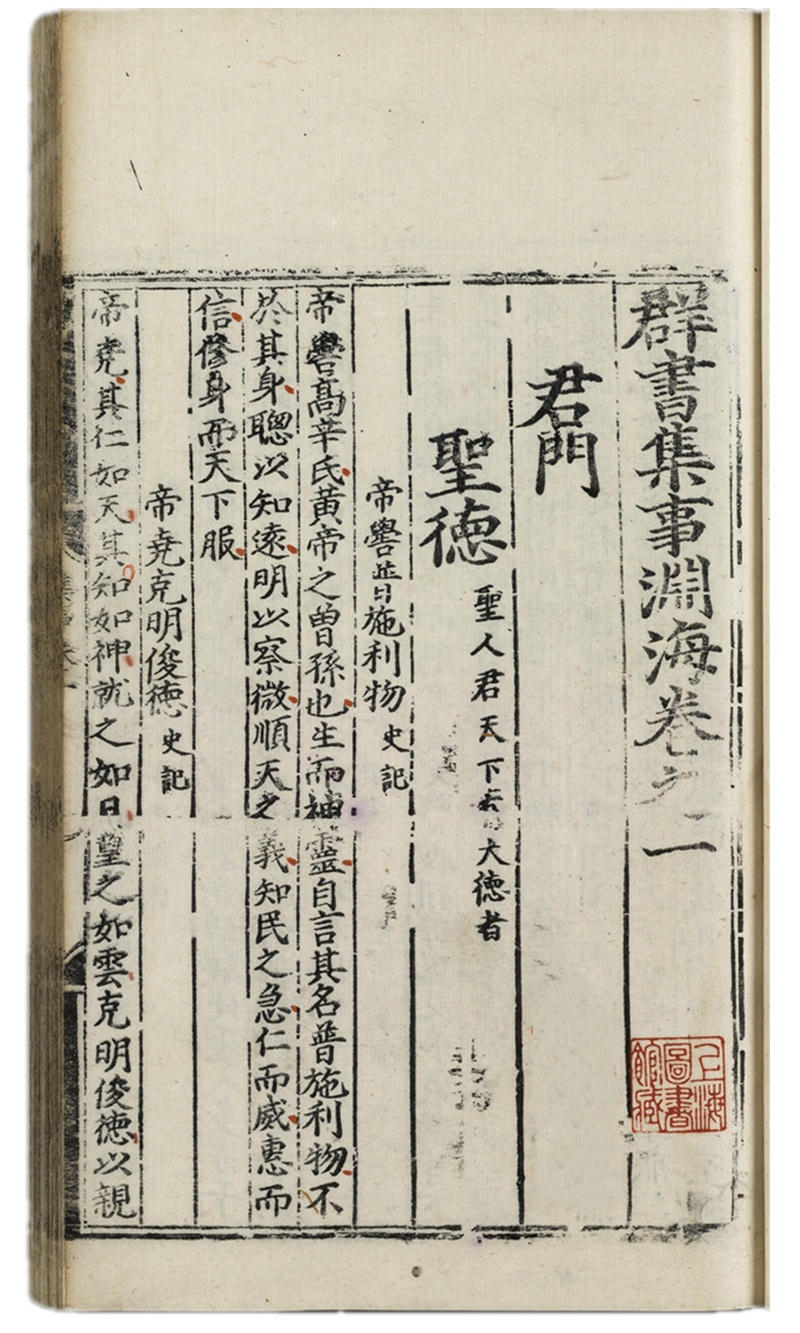 群書集事淵海卷之二
君門
聖德 聖人君天下有大德者
帝嚳普施利物 史記
帝嚳高辛氏黃帝之曾孫也生而神靈自言其名普施利物不
於其身聰以知遠明以察微順天之義知民之急仁而威惠而
信修身而天下服
帝堯克明俊德 史記
帝堯其仁如天其知如神就之如日望之如雲克明俊德以親
上海圖書館藏